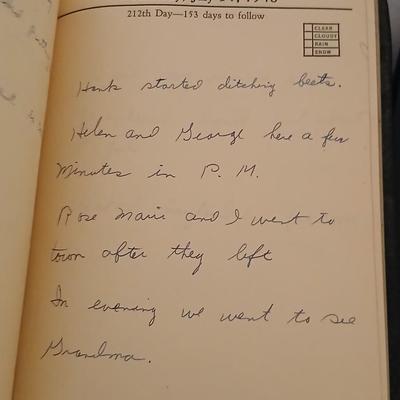 212th Day—153 days to follow
CLEAR
CLOUDY
RAIN
SNOW
Hank started ditching beets.
Helen and George here a few
Minutes in P. M.
Rose Marie and I went to
town after they left
In evening we went to see
Grandma.